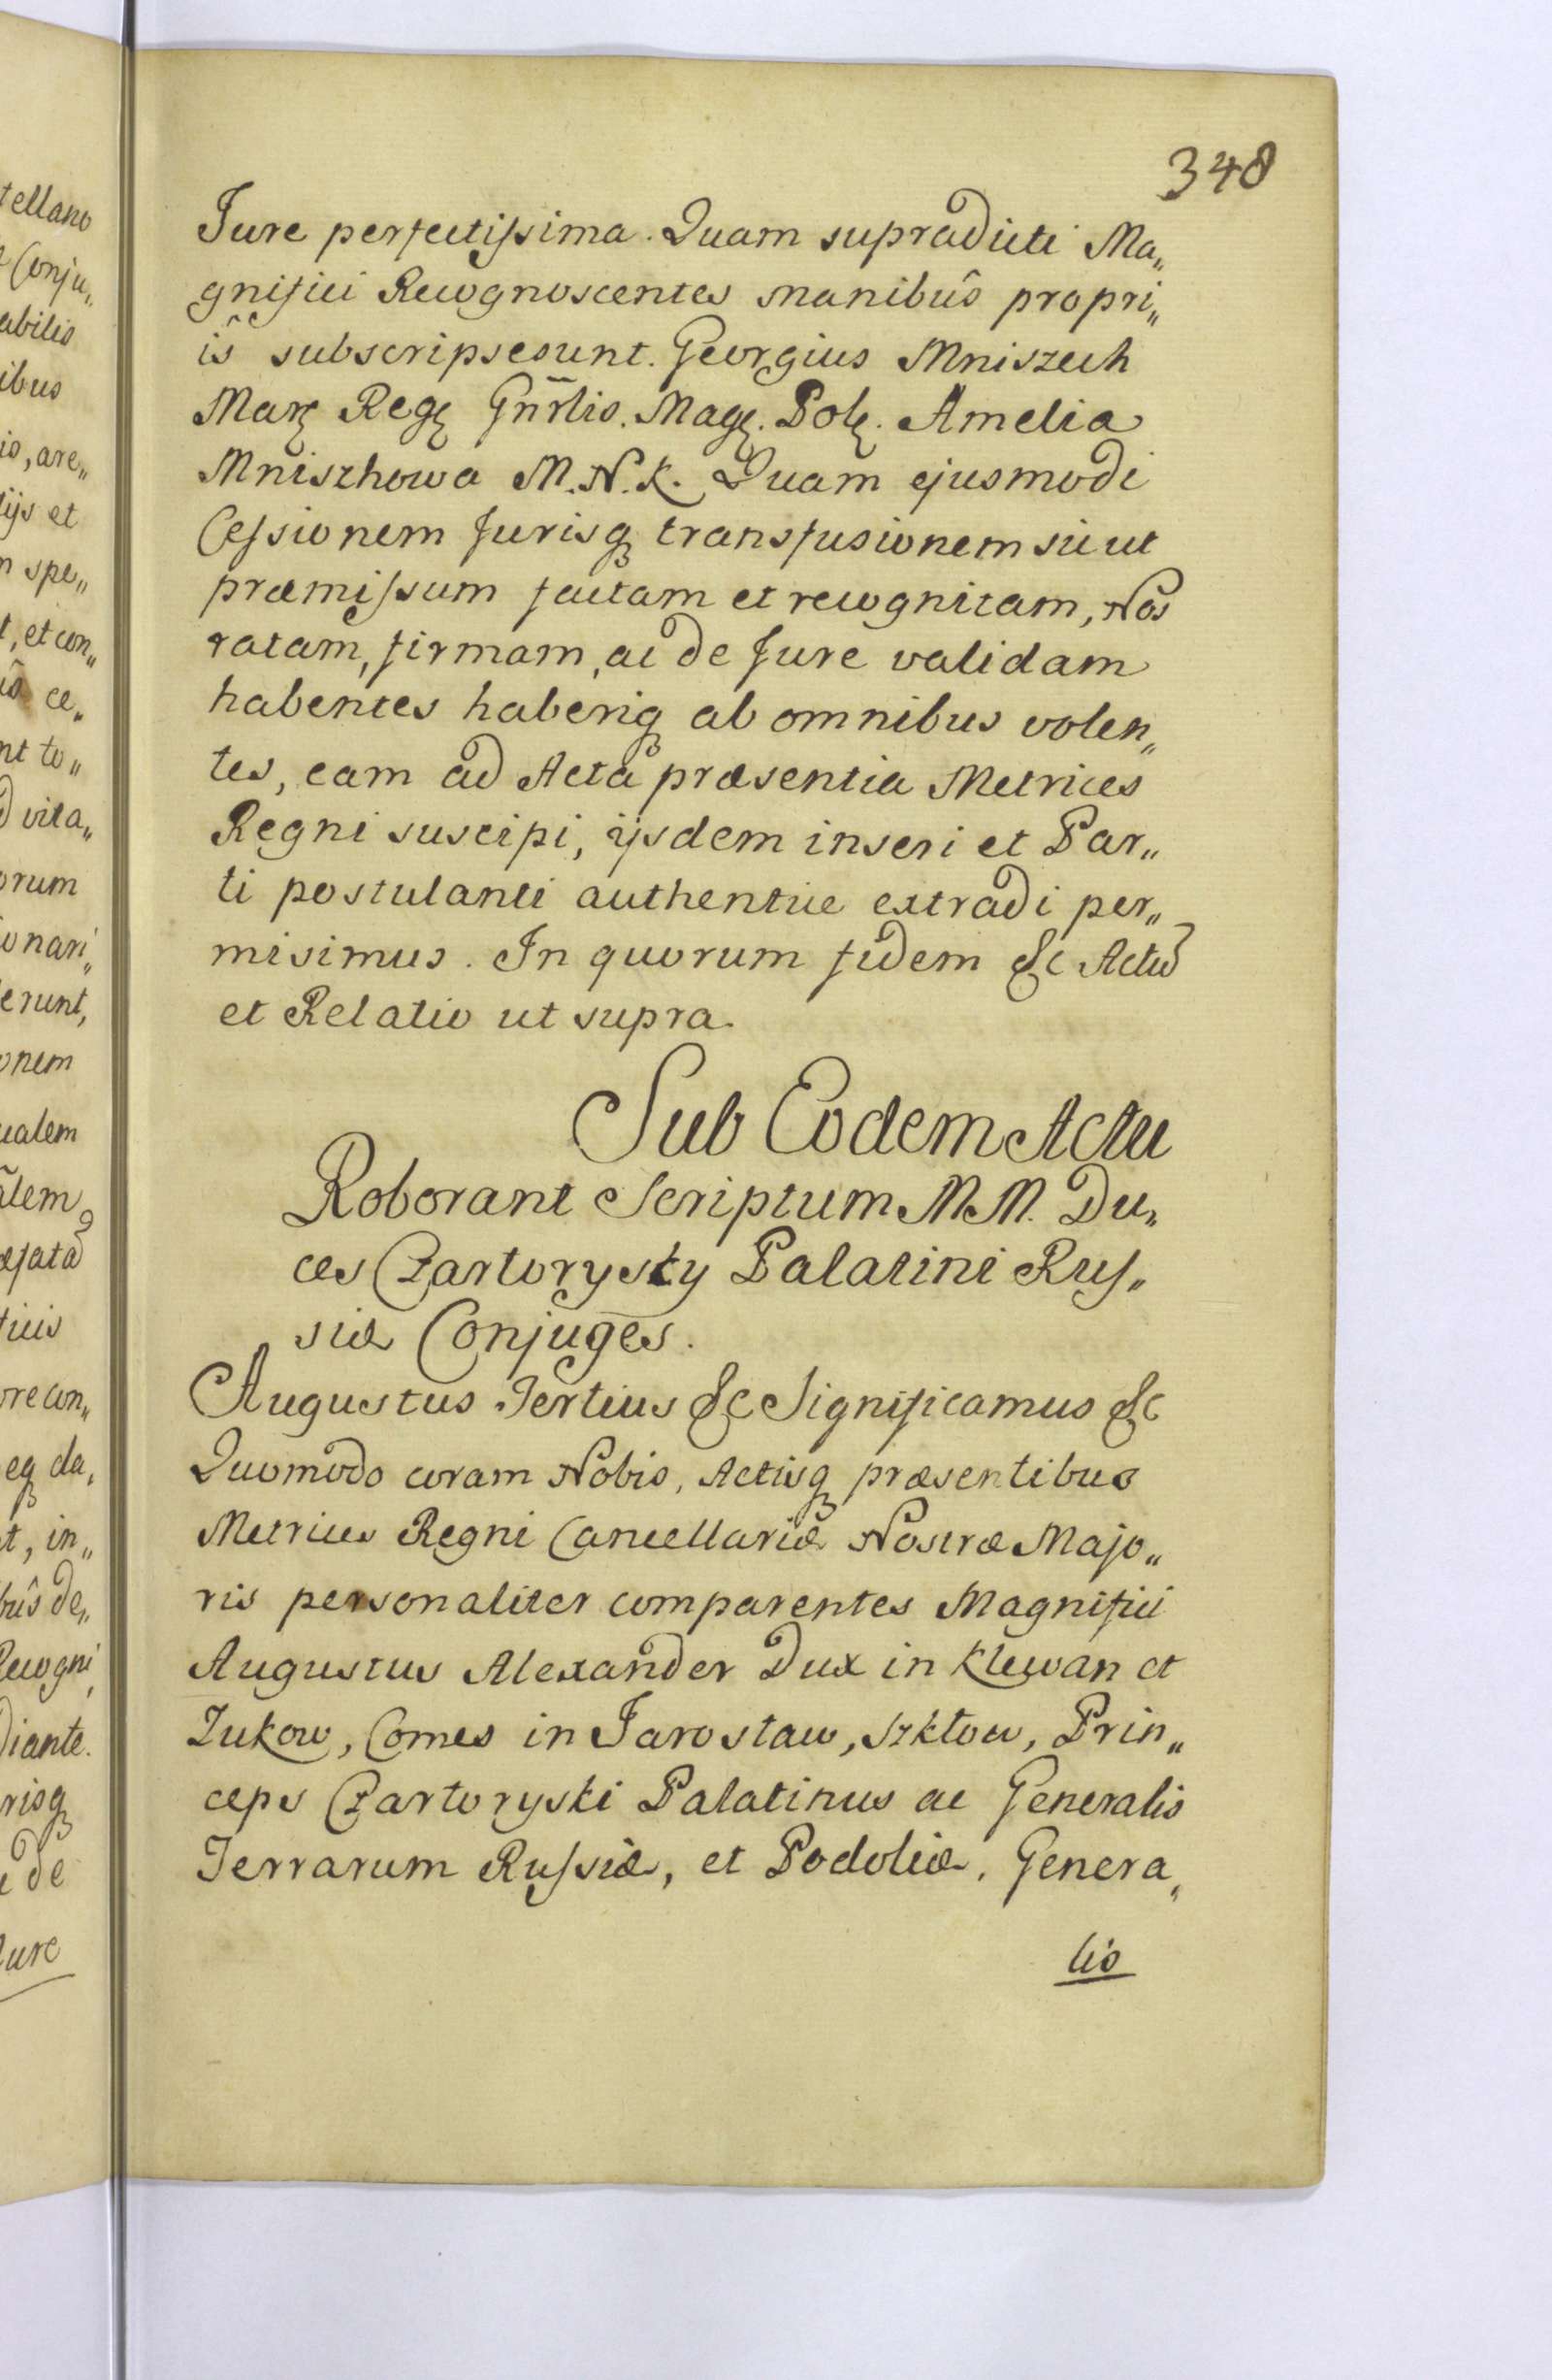 348
Jure perfectissima. Quam supradicti Ma„
gnifici Recognoscentes manibûs propri„
îs subscripserunt. Georgius Mniszech
Marę Regę Gnr̄lis. Magę. Polę. Amelia
Mniszhowa M.N.K. Quam ejusmodi
Cessionem Jurisq̨ transfusionem sicut
præmissum factam et recognitam, Nos
ratam, firmam, ac de Jure validam
habentes haberiq̨ ab omnibus volen„
tes, eam ad Acta præsentia Metrices
Regni suscipi, ijsdem inseri et Par„
ti postulanti authentice extradi per„
misimus. In quorum fidem &c Actũ
et Relatio ut supra.
Sub Eodem Actu
Roborant Scriptum M.M. Du„
ces Czartorysky Palatini Rus„
siæ Conjuges.
Augustus Tertius &c Significamus &c
Quomodo coram Nobis, Actisq̨ præsentibus
Metrices Regni Cancellariæ Nostræ Majo„
ris personaliter comparentes Magnifici
Augustus Alexander Dux in Klewan et
Zukow, Comes in Jarosław, Szkłow, Prin„
ceps Czartoryski Palatinus ac Generalis
Terrarum Russiæ, et Podoliæ, Genera„
lis
tellano
Conju„
abilis
ibus
is, are„
ijs et
spe„
t, et con„
îs ce„
nt to„
d vita„
orum
onari„
erunt,
onem
ualem
ãlem
æfatã
ticis
re con„
eq̨ da„
t, in„
bûs de„
Recogni„
diante.
risq̨
de
Jure